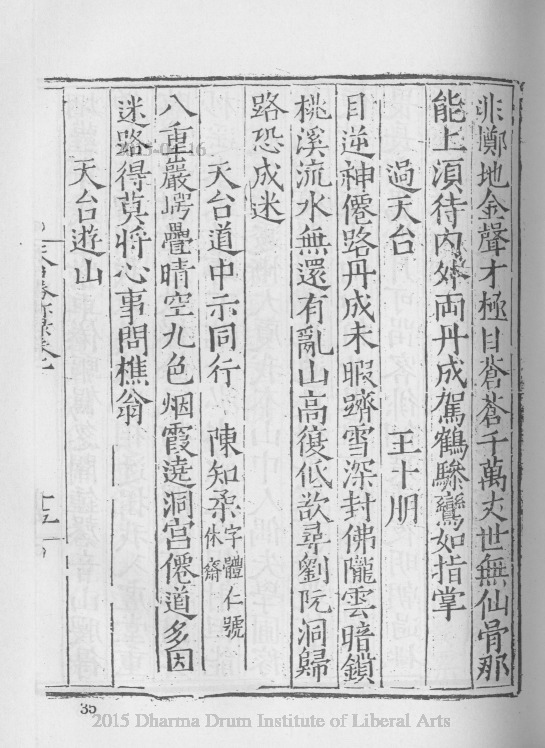 非擲地金聲才極目蒼蒼千萬丈世無仙骨那
能上須待內外両丹成駕鶴驂鸞如指掌
過天台 王十朋
目逆神僊路丹成未暇躋雪深封佛隴雲暗鎖
桃溪流水無還有亂山高復低欲尋劉阮洞歸
路恐成迷
天台道中示同行 陳知柔字體仁號休齋
八重巖崿疊晴空九色烟霞遶洞宫僊道多因
迷路得莫將心事問樵翁
天台遊山
十五
35
2015 Dharma Drum Institute of Liberal Arts